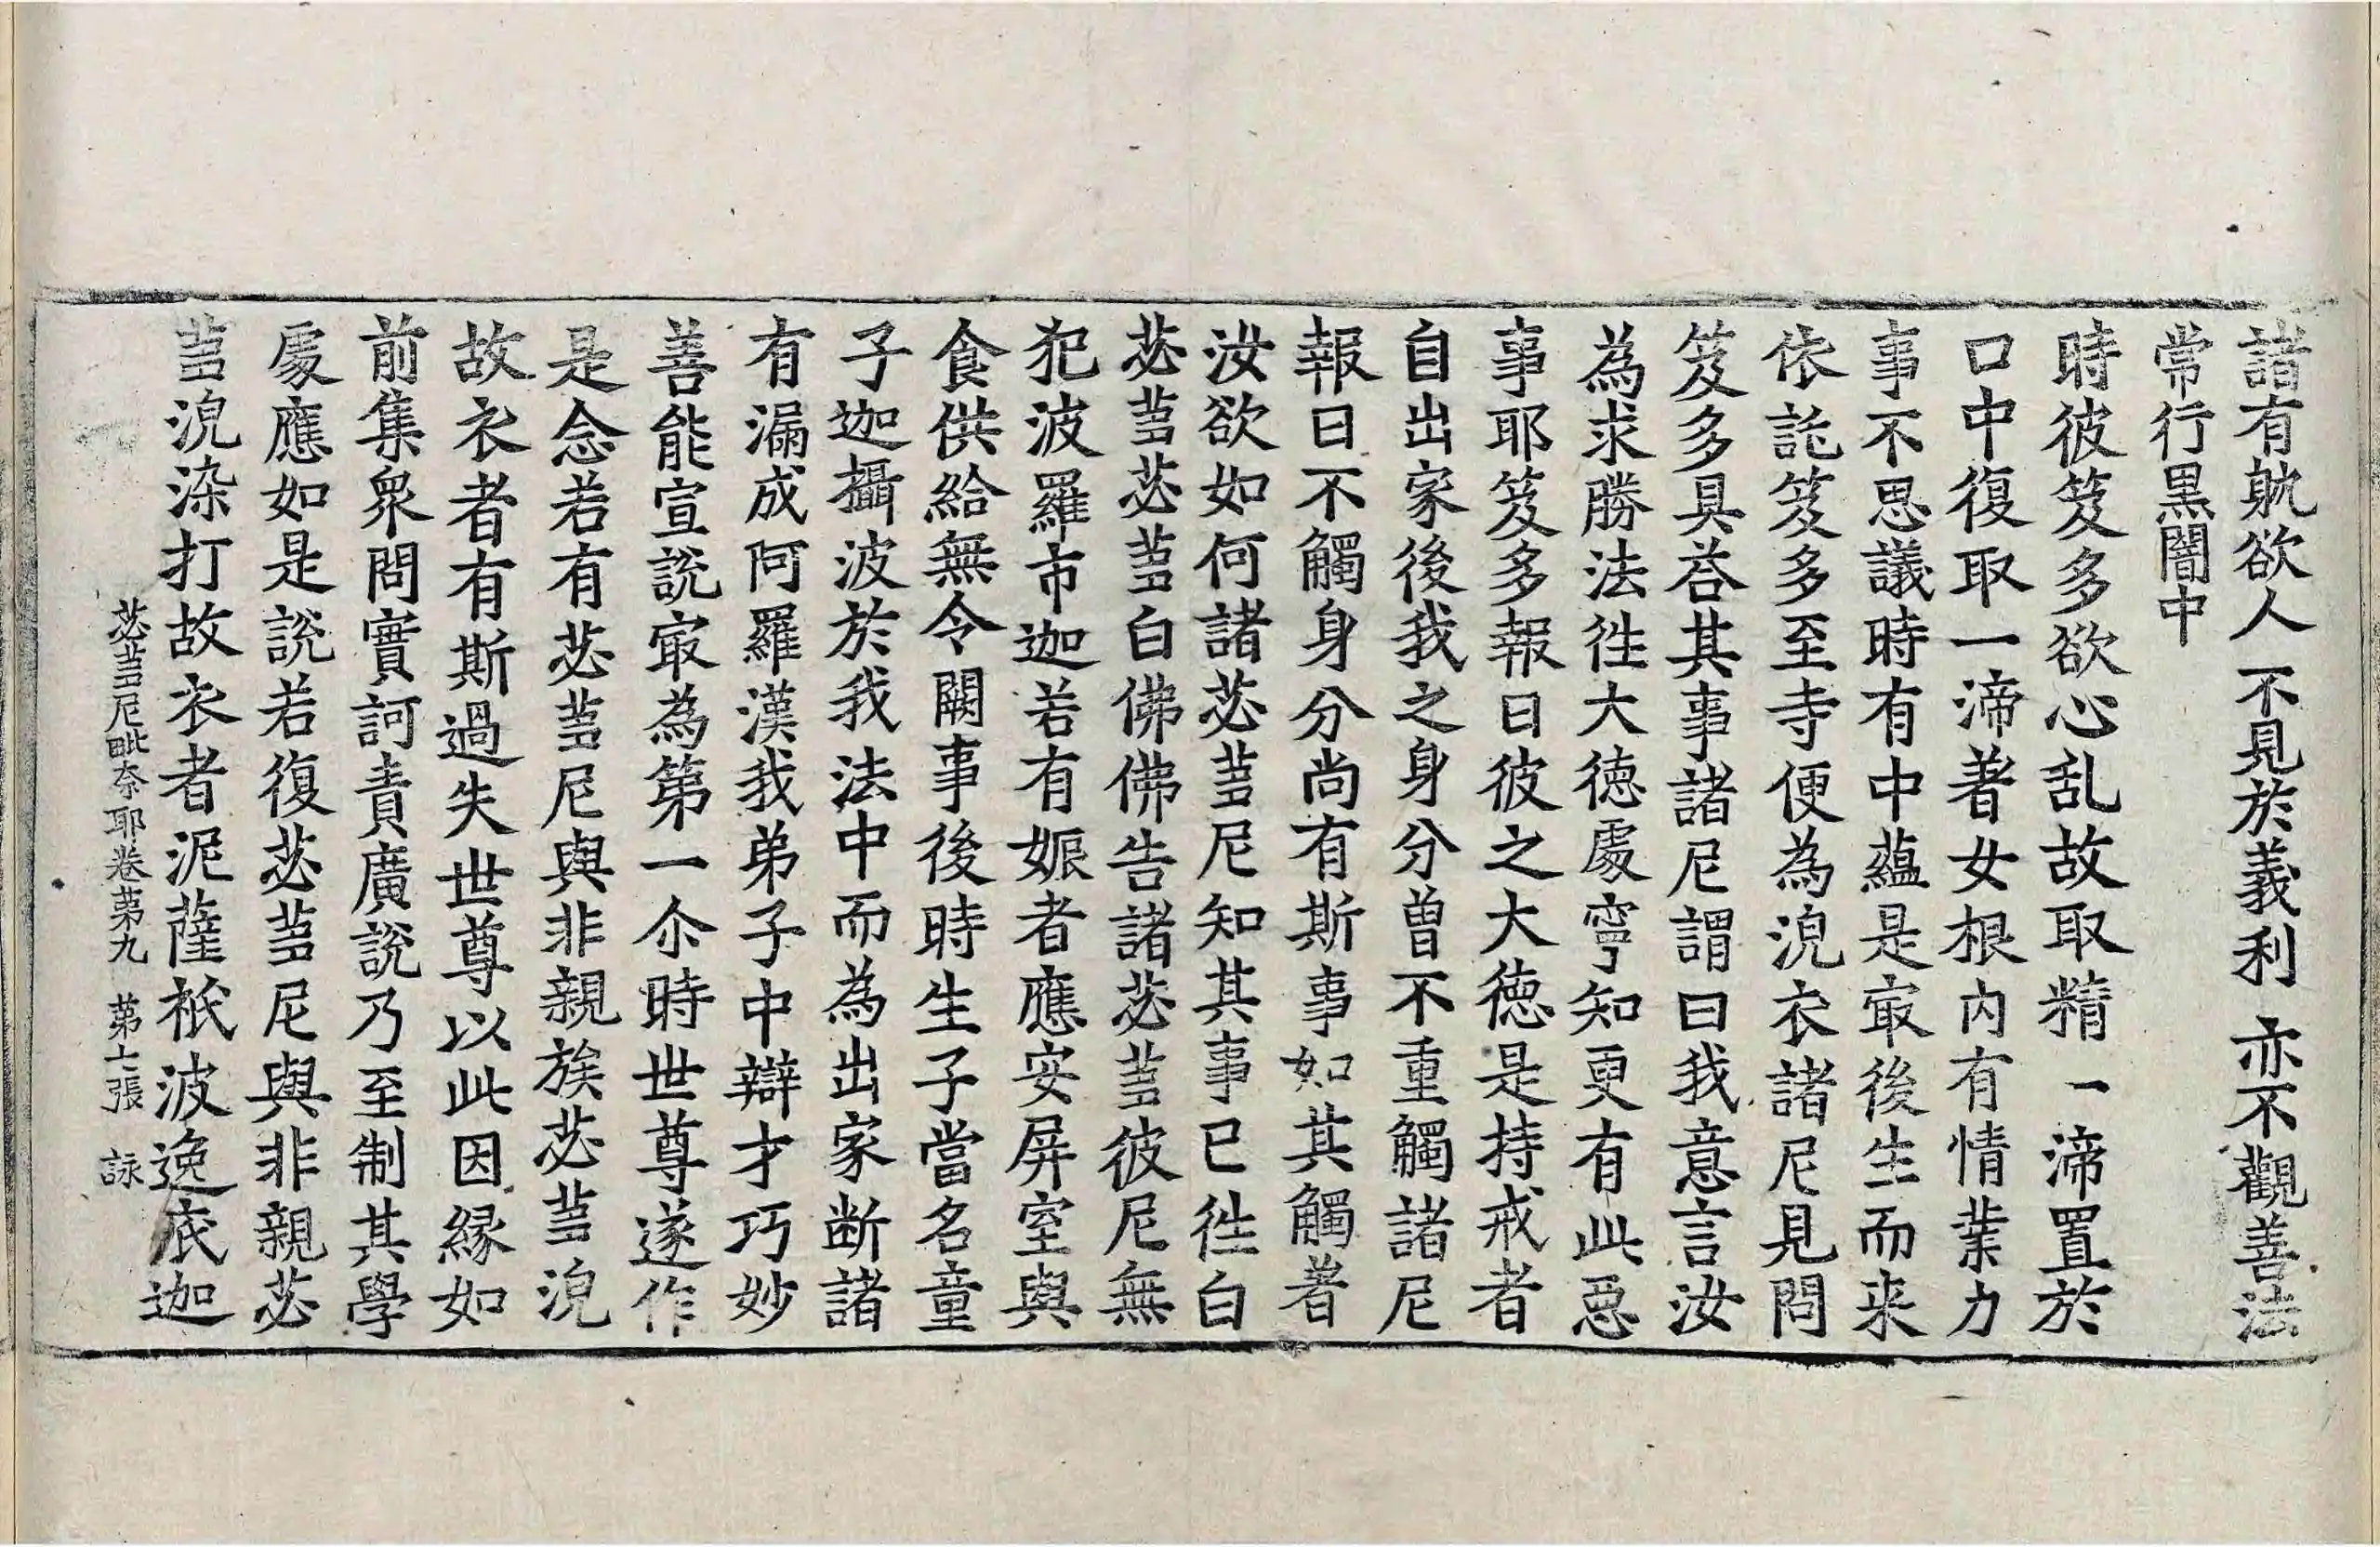 諸有躭欲人 不見於義利 亦不觀善法
常行黑闇中
時彼笈多欲心乱故取精一渧置於
口中復取一渧著女根內有情業力
事不思議時有中蘊是㝡後生而来
依託笈多至寺便為浣衣諸尼見問
笈多具荅其事諸尼謂曰我意言汝
為求勝法徃大德處寧知更有此惡
事耶笈多報曰彼之大德是持戒者
自出家後我之身分曾不重觸諸尼
報曰不觸身分尚有斯事如其觸著
汝欲如何諸苾蒭尼知其事已徃白
苾蒭苾蒭白佛佛告諸苾蒭彼尼無
犯波羅市迦若有娠者應安屏室與
食供給無令闕事後時生子當名童
子迦攝波於我法中而為出家断諸
有漏成阿羅漢我弟子中辯才巧妙
善能宣說㝡為第一尒時世尊遂作
是念若有苾蒭尼與非親族苾蒭浣
故衣者有斯過失世尊以此因緣如
前集衆問實訶責廣說乃至制其學
處應如是說若復苾蒭尼與非親苾
蒭浣染打故衣者泥薩祇波逸底迦
苾蒭尼毗奈耶卷第九 第七張 詠